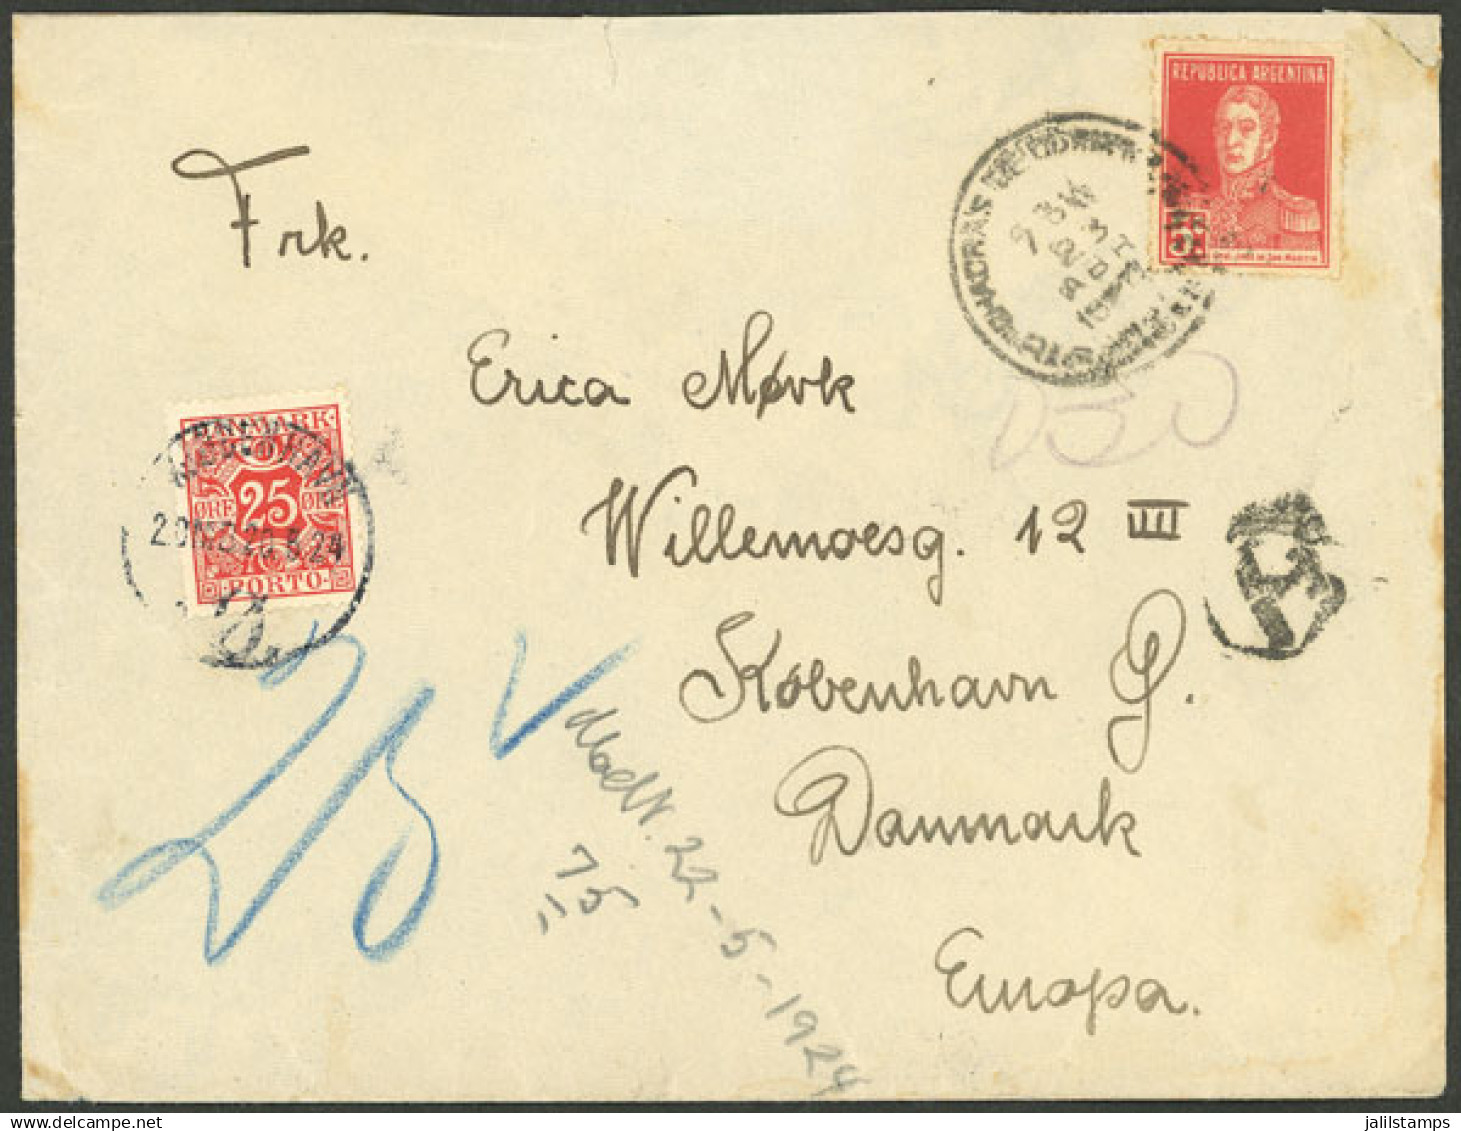 REPUBLICA ARGENTINA
5c
Frk.
Erica Møvk
DANMARK
ØRE 25 ØRE
PORTO
Willemoesg. 12 III
København Ø.
Danmark
Europa.
T
25 V
22-5-1924
75
jalilstamps